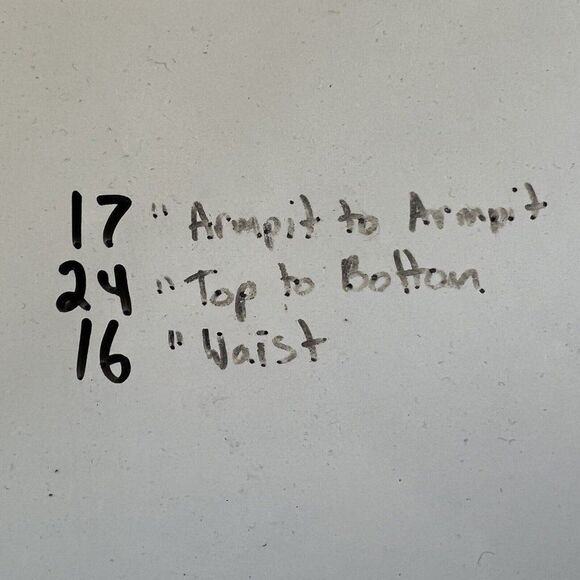 17" Armpit to Armpit
24" Top to Bottom
16" Waist